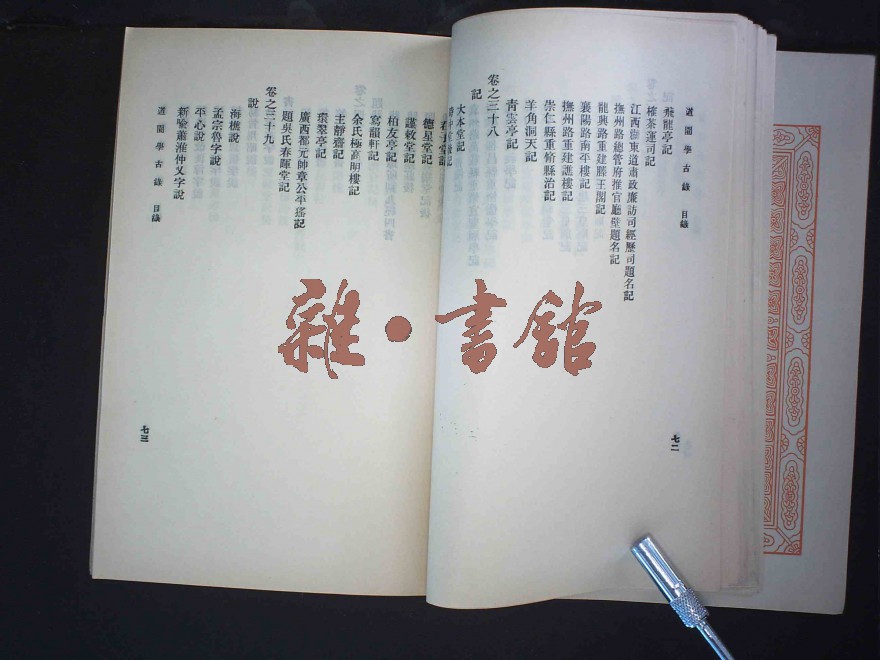 道園學古錄 目錄
飛龍亭記
榷茶運司記
江西湖東道肅政廉訪司經歷司題名記
撫州路總管府推官廳壁題名記
龍興路重建滕王閣記
襄陽路南平樓記
撫州路重建譙樓記
崇仁縣重脩縣治記
羊角洞天記
青雲亭記
卷之三十八
記
大本堂記
七二
德星堂記
謹敕堂記
柏友亭記
寫韻軒記
余氏極高明樓記
主靜齋記
環翠亭記
廣西都元帥章公平瑤記
題吳氏春暉堂記
卷之三十九
說
海樵說
孟宗魯字說
平心說
新喻蕭淮仲乂字說
道園學古錄 目錄
七三
雜·書館